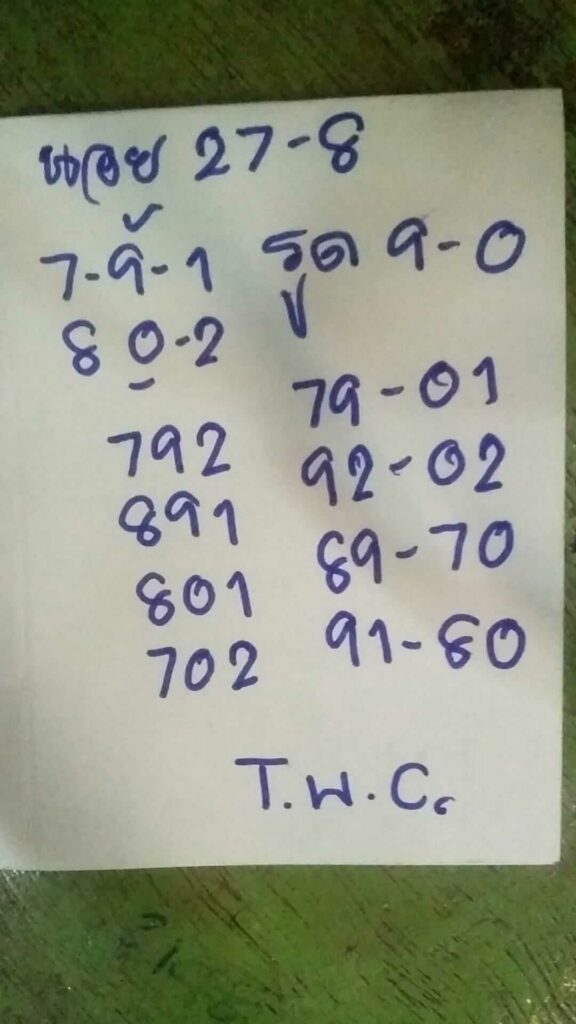 หวย 27-8
7-9-1 รูด 9-0
8 0-2
79-01
792
92-02
891
89-70
801
91-80
702
T.W.C.